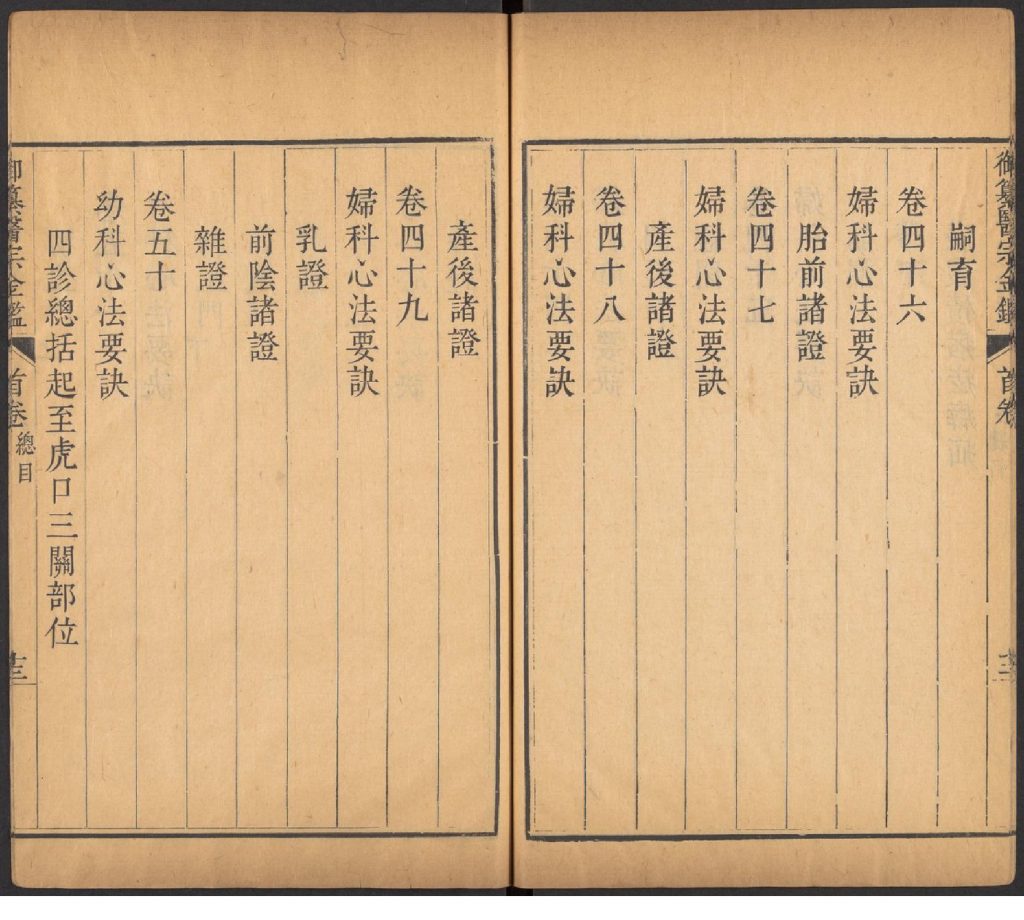 御纂醫宗金鑑
首卷
嗣育
卷四十六
婦科心法要訣
胎前諸證
卷四十七
婦科心法要訣
產後諸證
卷四十八
婦科心法要訣
產後諸證
卷四十九
婦科心法要訣
乳證
前陰諸證
雜證
卷五十
幼科心法要訣
四診總括起至虎口三關部位
御纂醫宗金鑑
首卷
總目